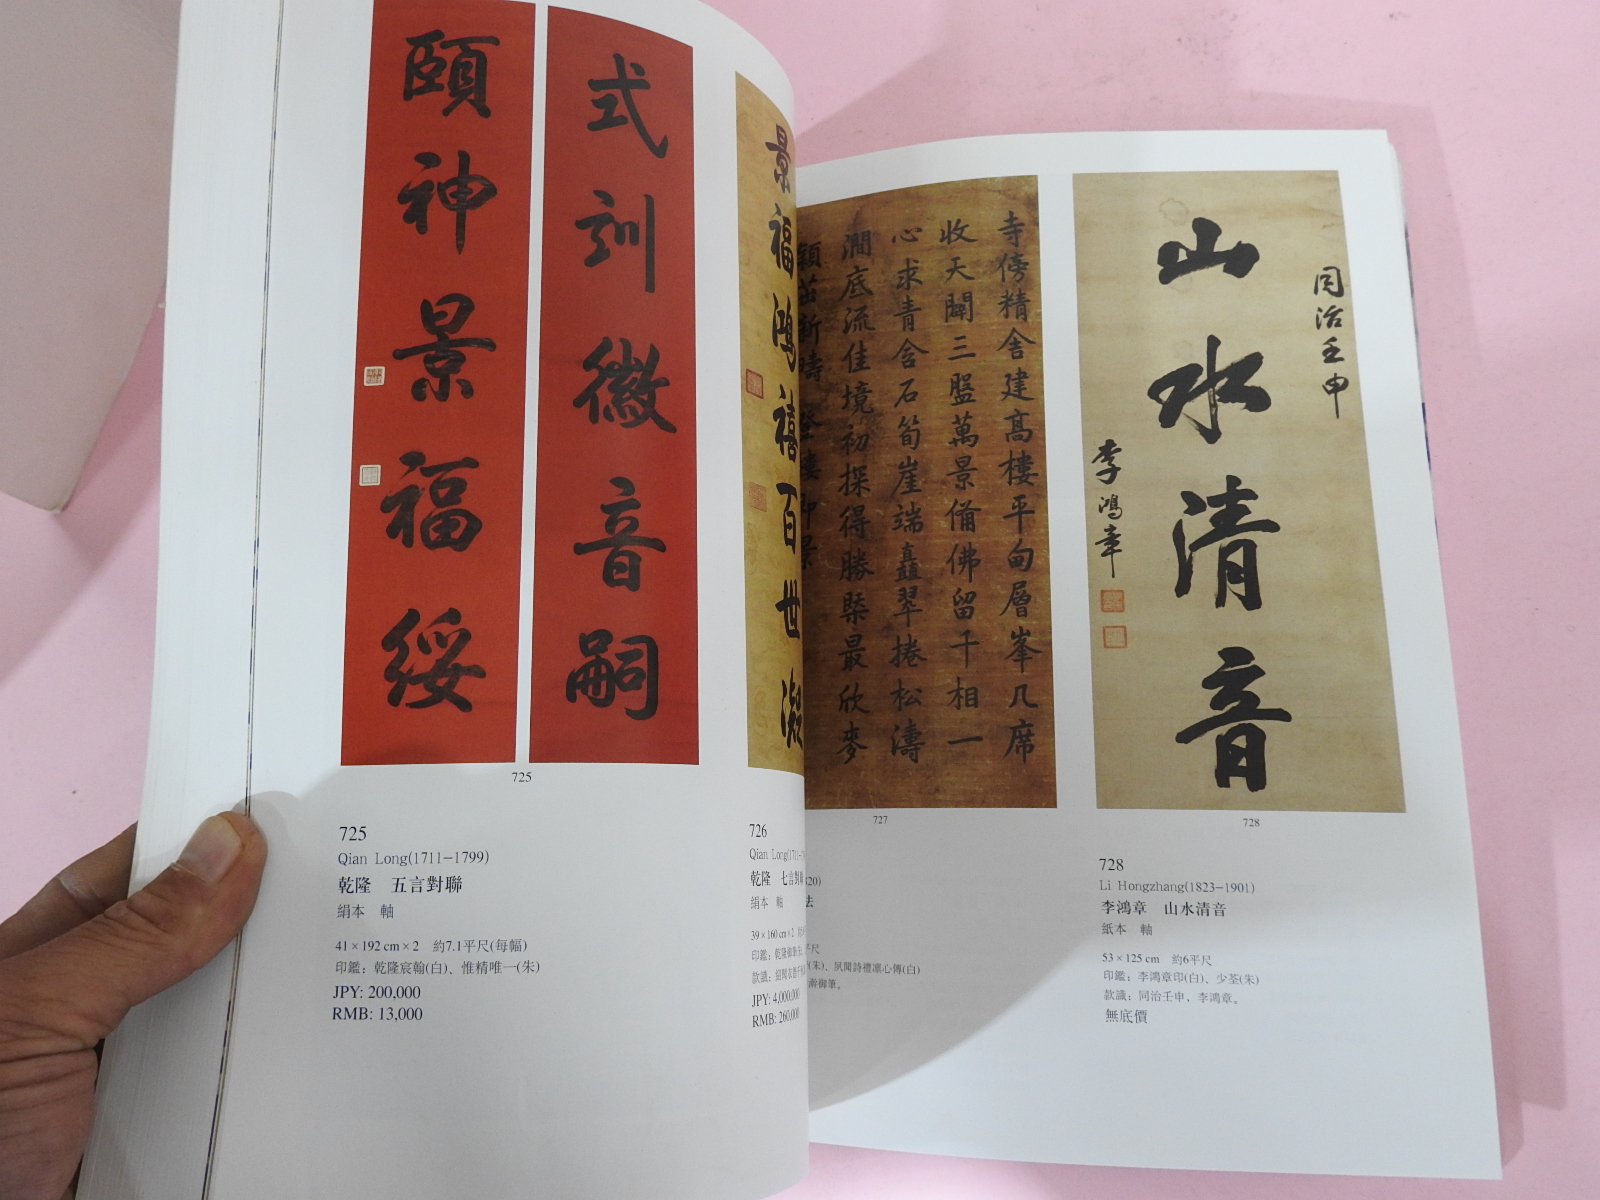 式訓徽音嗣
頤神景福綏
725
725
Qian Long(1711-1799)
乾隆 五言對聯
絹本 軸
41×192 cm×2 約7.1平尺(每幅)
印鑑：乾隆宸翰(白)、惟精唯一(朱)
JPY: 200,000
RMB: 13,000
景福鴻禧百世凝
726
Qian Long(
乾隆 七言對聯
絹本 軸
39×160 cm×2
JPY: 4,000,000
RMB: 260,000
寺傍精舍建高樓平甸層峯几席
收天闢三盤萬景備佛留千相一
心求青含石筍崖端矗翠捲松濤
澗底流佳境初探得勝槩最欣麥
727
法
平尺
(朱)、夙聞詩禮凜心傳(白)
御筆。
同治壬申
山水清音
李鴻章
728
728
Li Hongzhang(1823-1901)
李鴻章 山水清音
紙本 軸
53×125 cm 約6平尺
印鑑：李鴻章印(白)、少荃(朱)
款識：同治壬申、李鴻章。
無底價